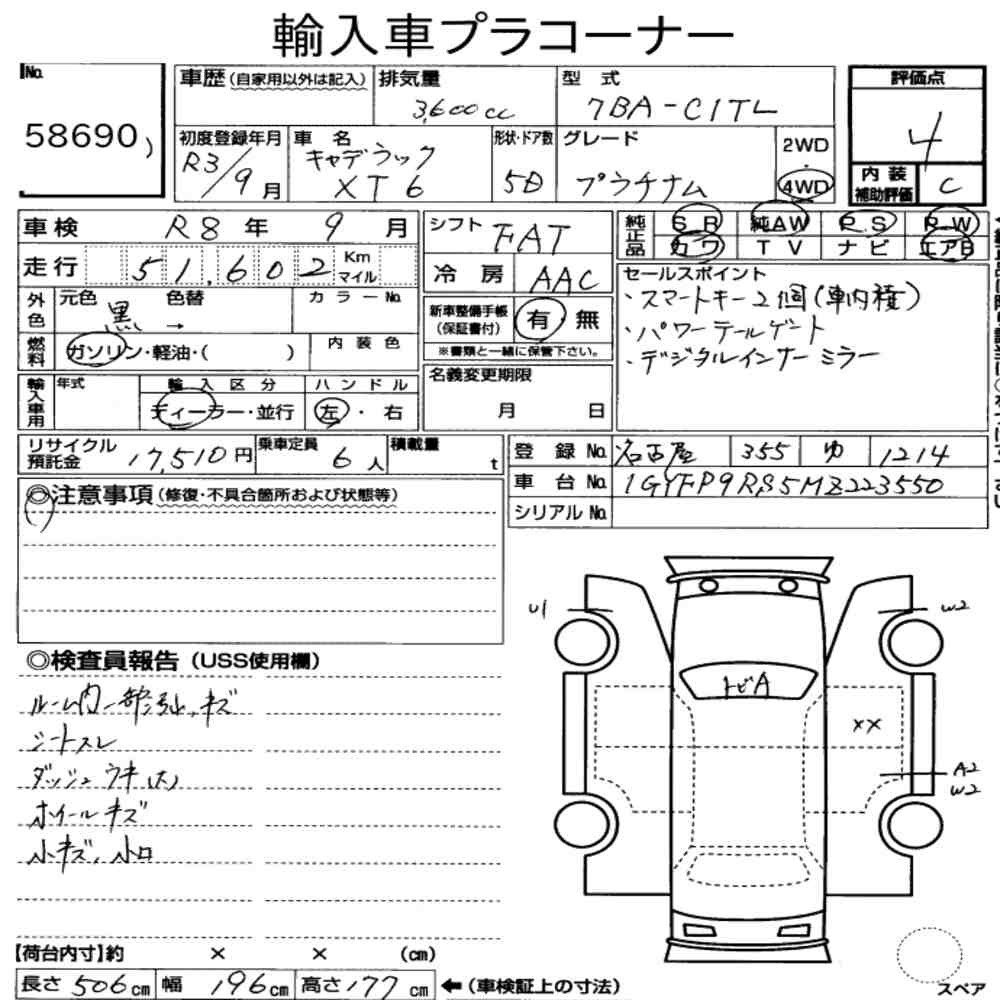 輸入車プラコーナー
No.
58690)
車歴(自家用以外は記入)
排気量
3,600cc
型式
7BA-C1TL
評価点
4
初度登録年月
R3/9月
車名
キャデラック
XT6
形状・ドア数
5D
グレード
プラチナム
2WD
4WD
内装補助評価
C
車検 R8年 9月
走行 51,602 Km マイル
外色
元色 黒 →
色替
カラーNo.
燃料
ガソリン・軽油・( )
内装色
輸入車用
年式
輸入区分
ディーラー・並行
ハンドル
左・右
シフト FAT
冷房 AAC
新車整備手帳(保証書付) 有 無
※書類と一緒に保管下さい。
名義変更期限
月 日
純正品
SR 純AW RS R-W
カワ TV ナビ エアB
セールスポイント
・スマートキー2個(車内積)
・パワーテールゲート
・デジタルインナーミラー
リサイクル預託金 17,510円
乗車定員 6人
積載量 t
登録No. 名古屋 355 ゆ 1214
車台No. 1GYFP9RS5MZ223550
シリアルNo.
◎注意事項(修復・不具合箇所および状態等)
◎検査員報告(USS使用欄)
ルーム内一部汚れ、キズ
シートスレ
ダッシュウキ(大)
ホイールキズ
小キズ、小凹
U1
W2
トビA
××
A2
W2
【荷台内寸】約 × × (cm)
長さ506cm 幅196cm 高さ177cm ←(車検証上の寸法)
スペア